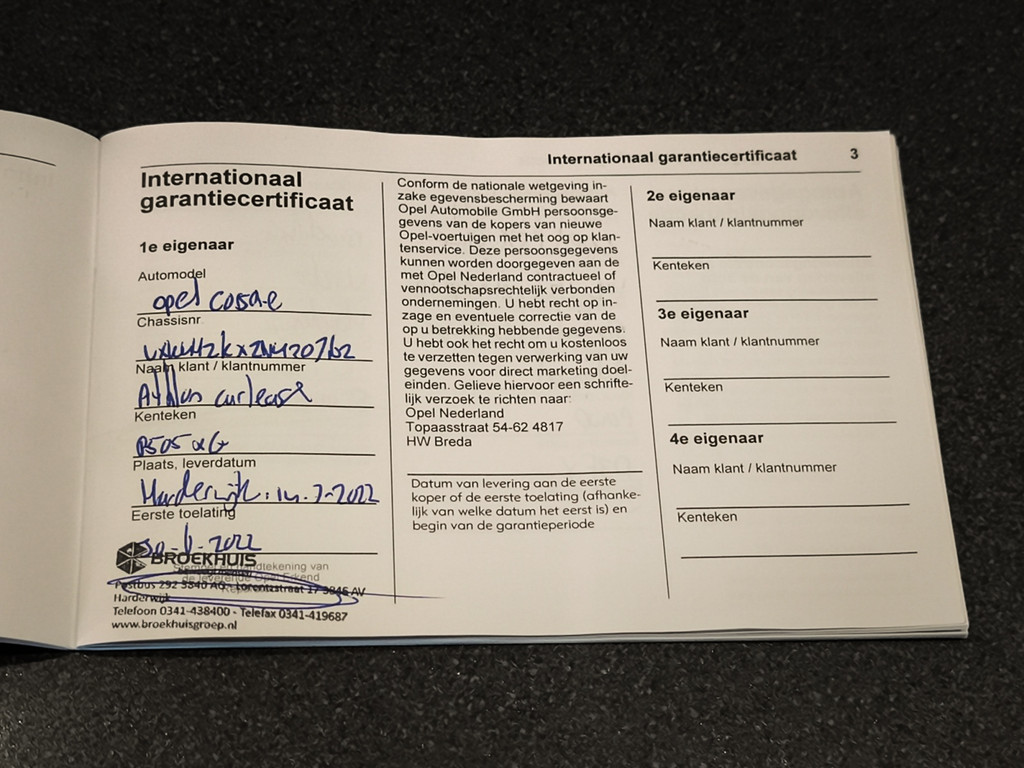 Internationaal garantiecertificaat 3
Internationaal
garantiecertificaat
1e eigenaar
Automodel
opel corsa-e
Chassisnr.
Naam klant / klantnummer
Athlon carlease
Kenteken
Plaats, leverdatum
Harderwijk
Eerste toelating
2022
BROEKHUIS
Postbus 292 3840 AG - Lorentzstraat 17 3846 AV
Harderwijk
Telefoon 0341-438400 - Telefax 0341-419687
www.broekhuisgroep.nl
Conform de nationale wetgeving in-
zake egevensbescherming bewaart
Opel Automobile GmbH persoonsge-
gevens van de kopers van nieuwe
Opel-voertuigen met het oog op klan-
tenservice. Deze persoonsgegevens
kunnen worden doorgegeven aan de
met Opel Nederland contractueel of
vennootschapsrechtelijk verbonden
ondernemingen. U hebt recht op in-
zage en eventuele correctie van de
op u betrekking hebbende gegevens.
U hebt ook het recht om u kostenloos
te verzetten tegen verwerking van uw
gegevens voor direct marketing doel-
einden. Gelieve hiervoor een schrifte-
lijk verzoek te richten naar:
Opel Nederland
Topaasstraat 54-62 4817
HW Breda
Datum van levering aan de eerste
koper of de eerste toelating (afhanke-
lijk van welke datum het eerst is) en
begin van de garantieperiode
2e eigenaar
Naam klant / klantnummer
Kenteken
3e eigenaar
Naam klant / klantnummer
Kenteken
4e eigenaar
Naam klant / klantnummer
Kenteken